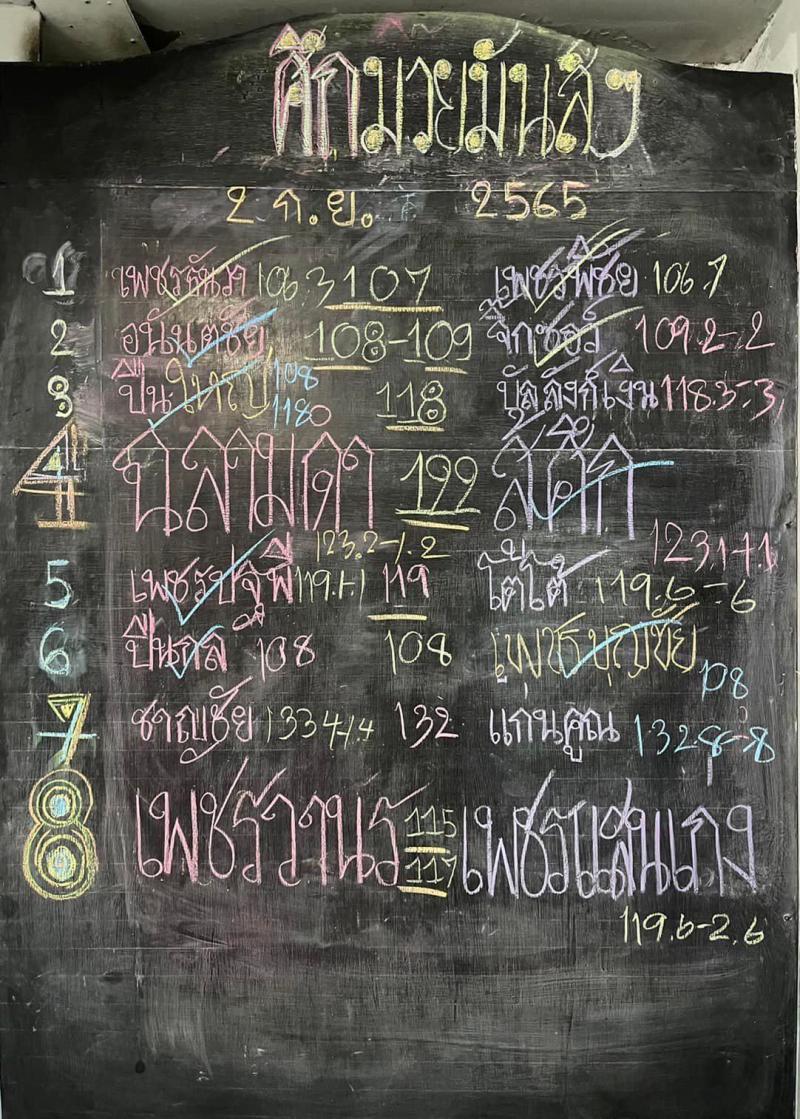 ศึกมวยมันส์ๆ
2 ก.ย. 2565
1 เพชรธันวา 106.3 107 เพชรพิชัย 106.7
2 อนันตชัย 108-109 จิ๊กซอว์ 109.2-.2
3 ปืนใหญ่ 108 118 บัลลังก์เงิน 118.3-.3
1180
4 ฉลามดำ 122
123.2-1.2 123.1+1.1
5 เพชรปฐพี 119.1-.1 119 โตโต้ 119.6-.6
6 ปืนกล 108 108 เพชรบุญชัย 108
7 ชาญชัย 133.4-1.4 132 แก่นคูณ 132.8-.8
8 เพชรวานร 115 เพชรแสนแกง
117
119.6-2.6